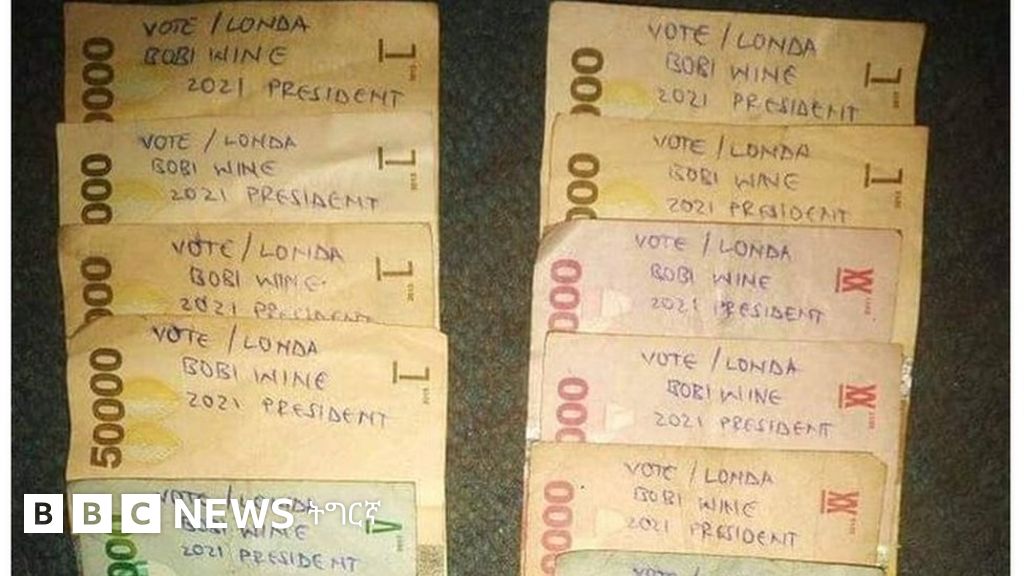 VOTE / LONDA
BOBI WINE
2021 PRESIDENT
0000
2013
VOTE / LONDA
BOBI WINE
2021 PRESIDENT
000
2013
VOTE / LONDA
BOBI WINE
2021 PRESIDENT
000
2013
VOTE / LONDA
BOBI WINE
2021 PRESIDENT
50000
VOTE / LONDA
BOBI WINE
2021 PRESIDENT
000
VOTE / LONDA
BOBI WINE
2021 PRESIDENT
000
VOTE / LONDA
BOBI WINE
2021 PRESIDENT
000
VOTE / LONDA
BOBI WINE
2021 PRESIDENT
000
VOTE / LONDA
BOBI WINE
2021 PRESIDENT
000
2017
VOTE / LONDA
BOBI WINE
2021 PRESIDENT
000
VOTE / LONDA
BBC NEWS ትግርኛ